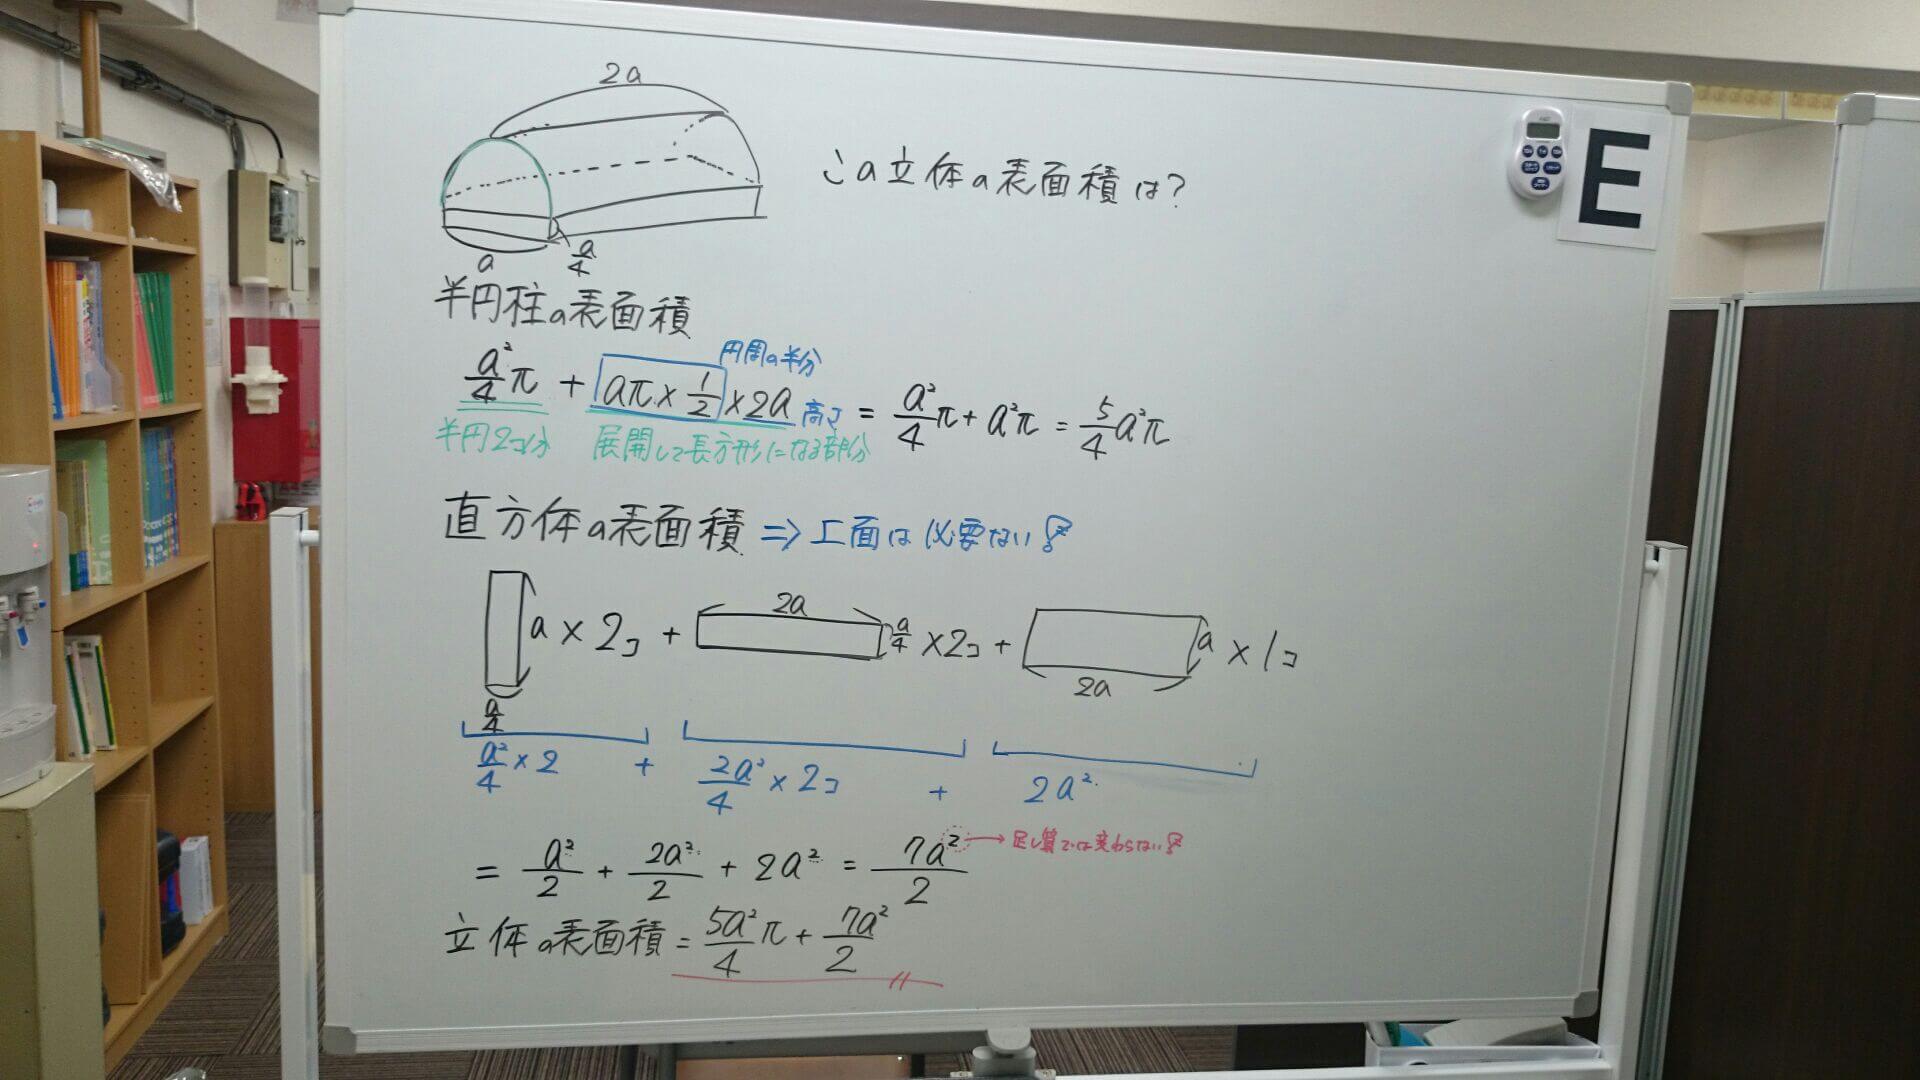 2a
この立体の表面積は?
E
a
a/4
半円柱の表面積
円周の半分
a²/4 π + aπ × 1/2 × 2a 高さ = a²/4 π + a²π = 5/4 a²π
半円2コ分 展開して長方形になる部分
直方体の表面積 ⇒ 上面は必要ない!
2a
a × 2コ + a/4 × 2コ + a × 1コ
a/4
2a
a²/4 × 2 + 2a²/4 × 2コ + 2a²
= a²/2 + 2a²/2 + 2a² = 7a²/2 → 足し算では変わらない!
立体の表面積 = 5a²/4 π + 7a²/2